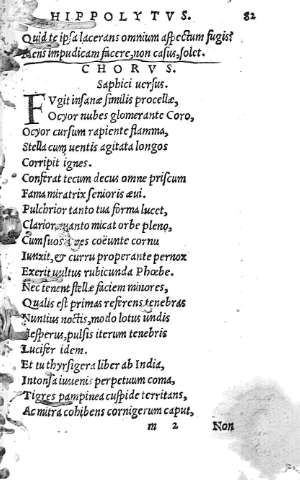 HIPPOLYTVS. 82
Quid te ipsa lacerans omnium aspectum fugis?
Mens impudicam facere, non casus, solet.
CHORVS.
Saphici uersus.
FVgit insanæ similis procellæ,
Ocyor nubes glomerante Coro,
Ocyor cursum rapiente flamma,
Stella cum uentis agitata longos
Corripit ignes.
Conferat tecum decus omne priscum
Fama miratrix senioris æui.
Pulchrior tanto tua forma lucet,
Clarior quanto micat orbe pleno,
Cum suos ignes coëunte cornu
Iunxit, & curru properante pernox
Exerit uultus rubicunda Phœbe.
Nec tenent stellæ faciem minores,
Qualis est primas referens tenebras
Nuntius noctis, modo lotus undis
Hesperus, pulsis iterum tenebris
Lucifer idem.
Et tu thyrsigera liber ab India,
Intonsa iuuenis perpetuum coma,
Tigres pampinea cuspide territans,
Ac mitra cohibens cornigerum caput,
m 2 Non